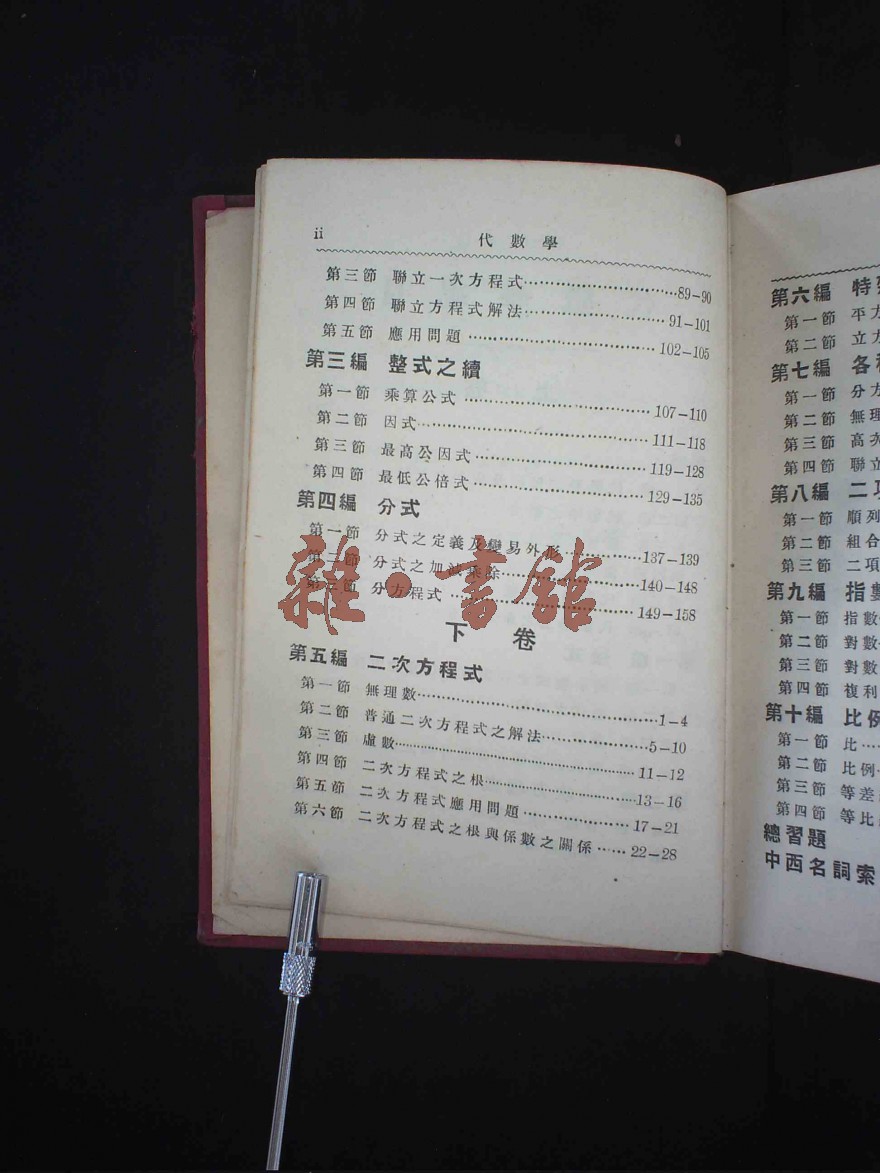 ii 代數學
第三節 聯立一次方程式……89-90
第四節 聯立方程式解法……91-101
第五節 應用問題……102-105
第三編 整式之續
第一節 乘算公式……107-110
第二節 因式……111-118
第三節 最高公因式……119-128
第四節 最低公倍式……129-135
第四編 分式
第一節 分式之定義及變易外形……137-139
第二節 分式之加減乘除……140-148
第三節 分方程式……149-158
下卷
第五編 二次方程式
第一節 無理數……1-4
第二節 普通二次方程式之解法……5-10
第三節 虛數……11-12
第四節 二次方程式之根……13-16
第五節 二次方程式應用問題……17-21
第六節 二次方程式之根與係數之關係……22-28
雜·書館
第六編 特
第一節 平方
第二節 立方
第七編 各
第一節 分方
第二節 無理
第三節 高次
第四節 聯立
第八編 二項
第一節 順列
第二節 組合
第三節 二項
第九編 指數
第一節 指數
第二節 對數
第三節 對數
第四節 複利
第十編 比例
第一節 比……
第二節 比例
第三節 等差
第四節 等比
總習題
中西名詞索